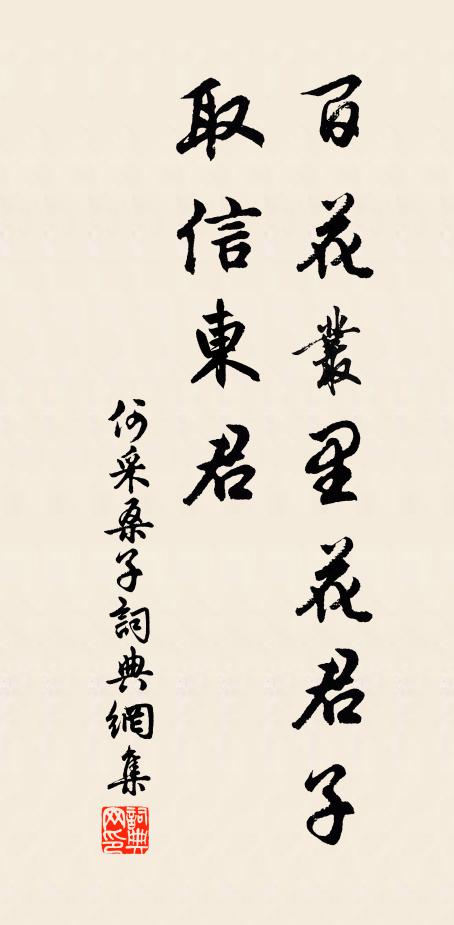 百花叢里花君子
取信東君
何采桑子詞典網集
詞典网印